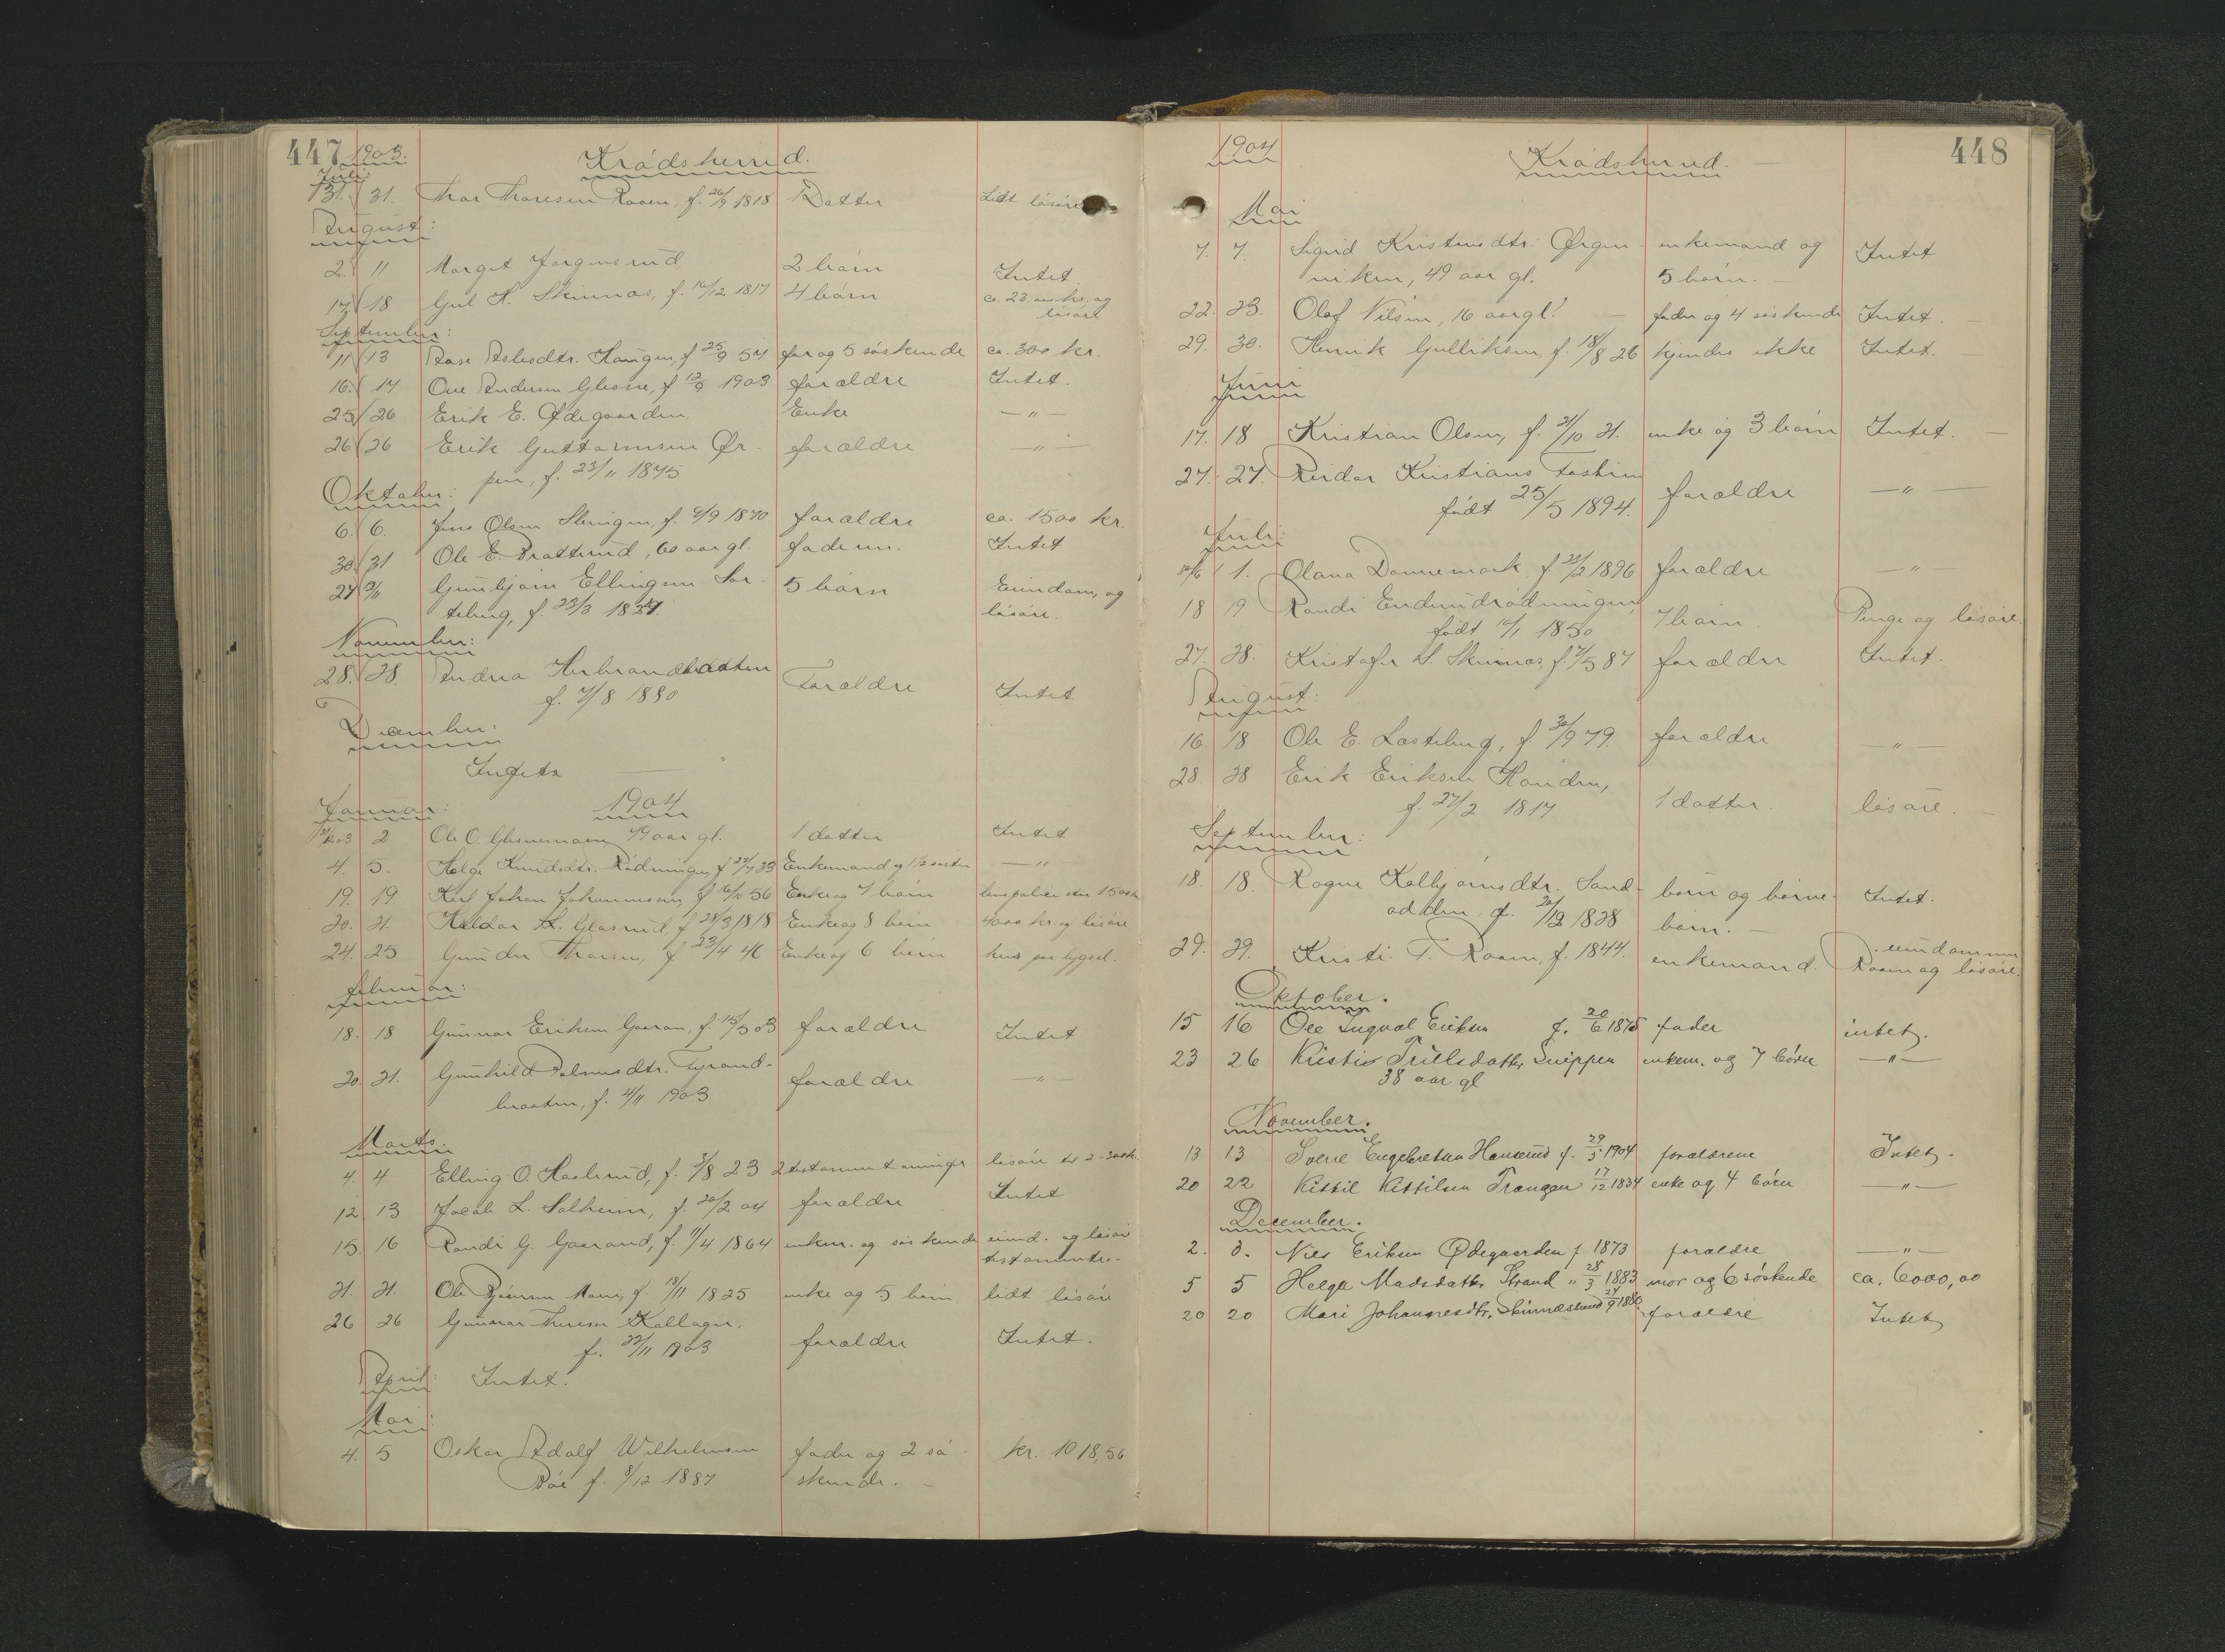 447 1903. Krødsherred.
Juli:
31. 31. Thor Thoresen Raaen, f. 26/9 1818 1 Datter Lidt løsøre
August:
2. 11 Margit Jørgensrud 2 børn Intet
17. 18 Gul H. Skinnes, f. 16/12 1817 4 børn ca. 23 kr. og
løsøre
September:
11 13 Aase Aslesdtr. Haugen, f 25/9 54 far og 5 søskende ca. 300 kr.
16. 17 Ove Andersen Glesne, f 12/9 1903 forældre Intet.
25 26 Erik E. Ødegaarden. Enke —"—
26 26 Erik Guttormsen Ør- forældre —"—
pen, f. 23/11 1875
Oktober:
6. 6. Jens Olsen Slevigen, f. 4/9 1870 forældre ca. 1500 kr.
30. 31 Ole E. Brattrud, 60 aar gl. faderen. Intet
27 2/11 Gunbjørn Ellingsen Las- 5 børn Eiendom og
teberg, f. 23/3 1827 løsøre.
November:
28. 28. Andrea Herbrandsdatter
f. 7/8 1880 Forældre Intet
December:
Ingen
Januar: 1904
31/12 03 2 Ole O. Glesnemoen, 79 aar gl. 1 datter Intet
4. 5. Helge Knudsdtr. Rødningen, f 27/7 23 Enkemand og 1/2 søster —"—
19. 19 Karl Johan Johannesen, f 16/10 56 Enke og 7 børn livspolice stor 1500 kr.
20. 21. Haldor K. Glasrud, f 28/3 1818 Enke og 8 børn 4000 kr. og løsøre
24. 25 Gunder Thorsen, f 23/4 46 Enke og 6 børn hus paa bygsel.
Februar:
18. 18 Gunnar Eriksen Gaaran, f. 15/5 03 forældre Intet
20. 21. Gunhild Palmesdtr. Tyrand-
braaten, f. 4/11 1903 forældre —"—
Marts.
4. 4 Elling O. Haslerud, f. 3/8 23 2 testamentarvinger løsøre til 2-300 kr.
12 13 Jacob L. Solheim, f. 20/2 04 forældre Intet
15. 16 Randi G. Gaarand, f. 11/4 1864 enkem. og søskende eiend. og løsøre
testamente.-
21. 21. Ole Bjørnsen Moen, f. 18/11 1825 enke og 5 børn lidt løsøre
26 26 Gunnar Thoresen Kallager.
f. 23/11 1903 forældre Intet.
April: Intet.
Mai:
4. 5 Oskar Adolf Wilhelmsen fader og 2 sø- kr. 1018,56
Bøe f. 8/12 1887 skende. —
1904 Krødsherred. — 448
Mai
7. 7. Sigrid Kristensdtr. Ørgen- enkemand og Intet
viken, 49 aar gl. 5 børn. —
22. 23. Olaf Nilsen, 16 aar gl. — fader og 4 søskende Intet. —
29. 30. Henrik Gulliksen f. 18/8 26 kjendes ikke Intet. —
Juni
17. 18 Kristian Olsen, f. 21/10 21. enke og 3 børn Intet. —
27. 27. Reidar Kristians Fastin
født 25/5 1894. forældre —"—
Juli:
30/6 1. Olava Dannemark, f 22/2 1896 forældre —"—
18 19 Randi Endrudrødningen,
født 10/1 1850 7 børn. Penge og løsøre.
27. 28. Kristofer S. Skinnes, f. 7/5 87 forældre Intet.
August:
16. 18 Ole E. Lasteberg, f 30/9 79. forældre —"—
28. 28 Erik Eriksen Hovden,
f. 27/2 1817 1 datter. løsøre. —
September:
18. 18. Rogne Kolbjørnsdtr. Sand- børn og børne- Intet.
odden, f. 20/12 1828 børn. —
29. 29. Kristi T. Raaen, f. 1844. enkemand. eiendommen
Raaen og løsøre.
Oktober.
15 16 Ole Ingval Eriksen f. 20/6 1875 fader intet.
23 26 Kristi Trulsdatter Snippen enkem. og 7 børn —"—
38 aar gl
November.
13 13 Sverre Engebretsen Hanserud f. 29/5 1904 forældrene Intet.
20 22 Kittil Kittilsen Trangen 17/12 1834 enke og 4 børn —"—
December.
2. 3. Nils Eriksen Ødegaarden f 1873 forældre —"—
5 5 Helga Madsdatter Strand " 28/3 1883 mor og 6 søskende ca. 6000,00
20 20 Mari Johannesdtr. Skinneslund 27/9 1880 forældre Intet